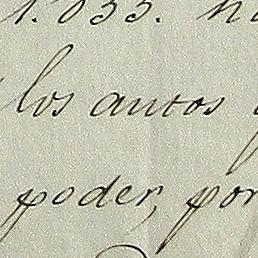 1.835. 
los autos
poder, por